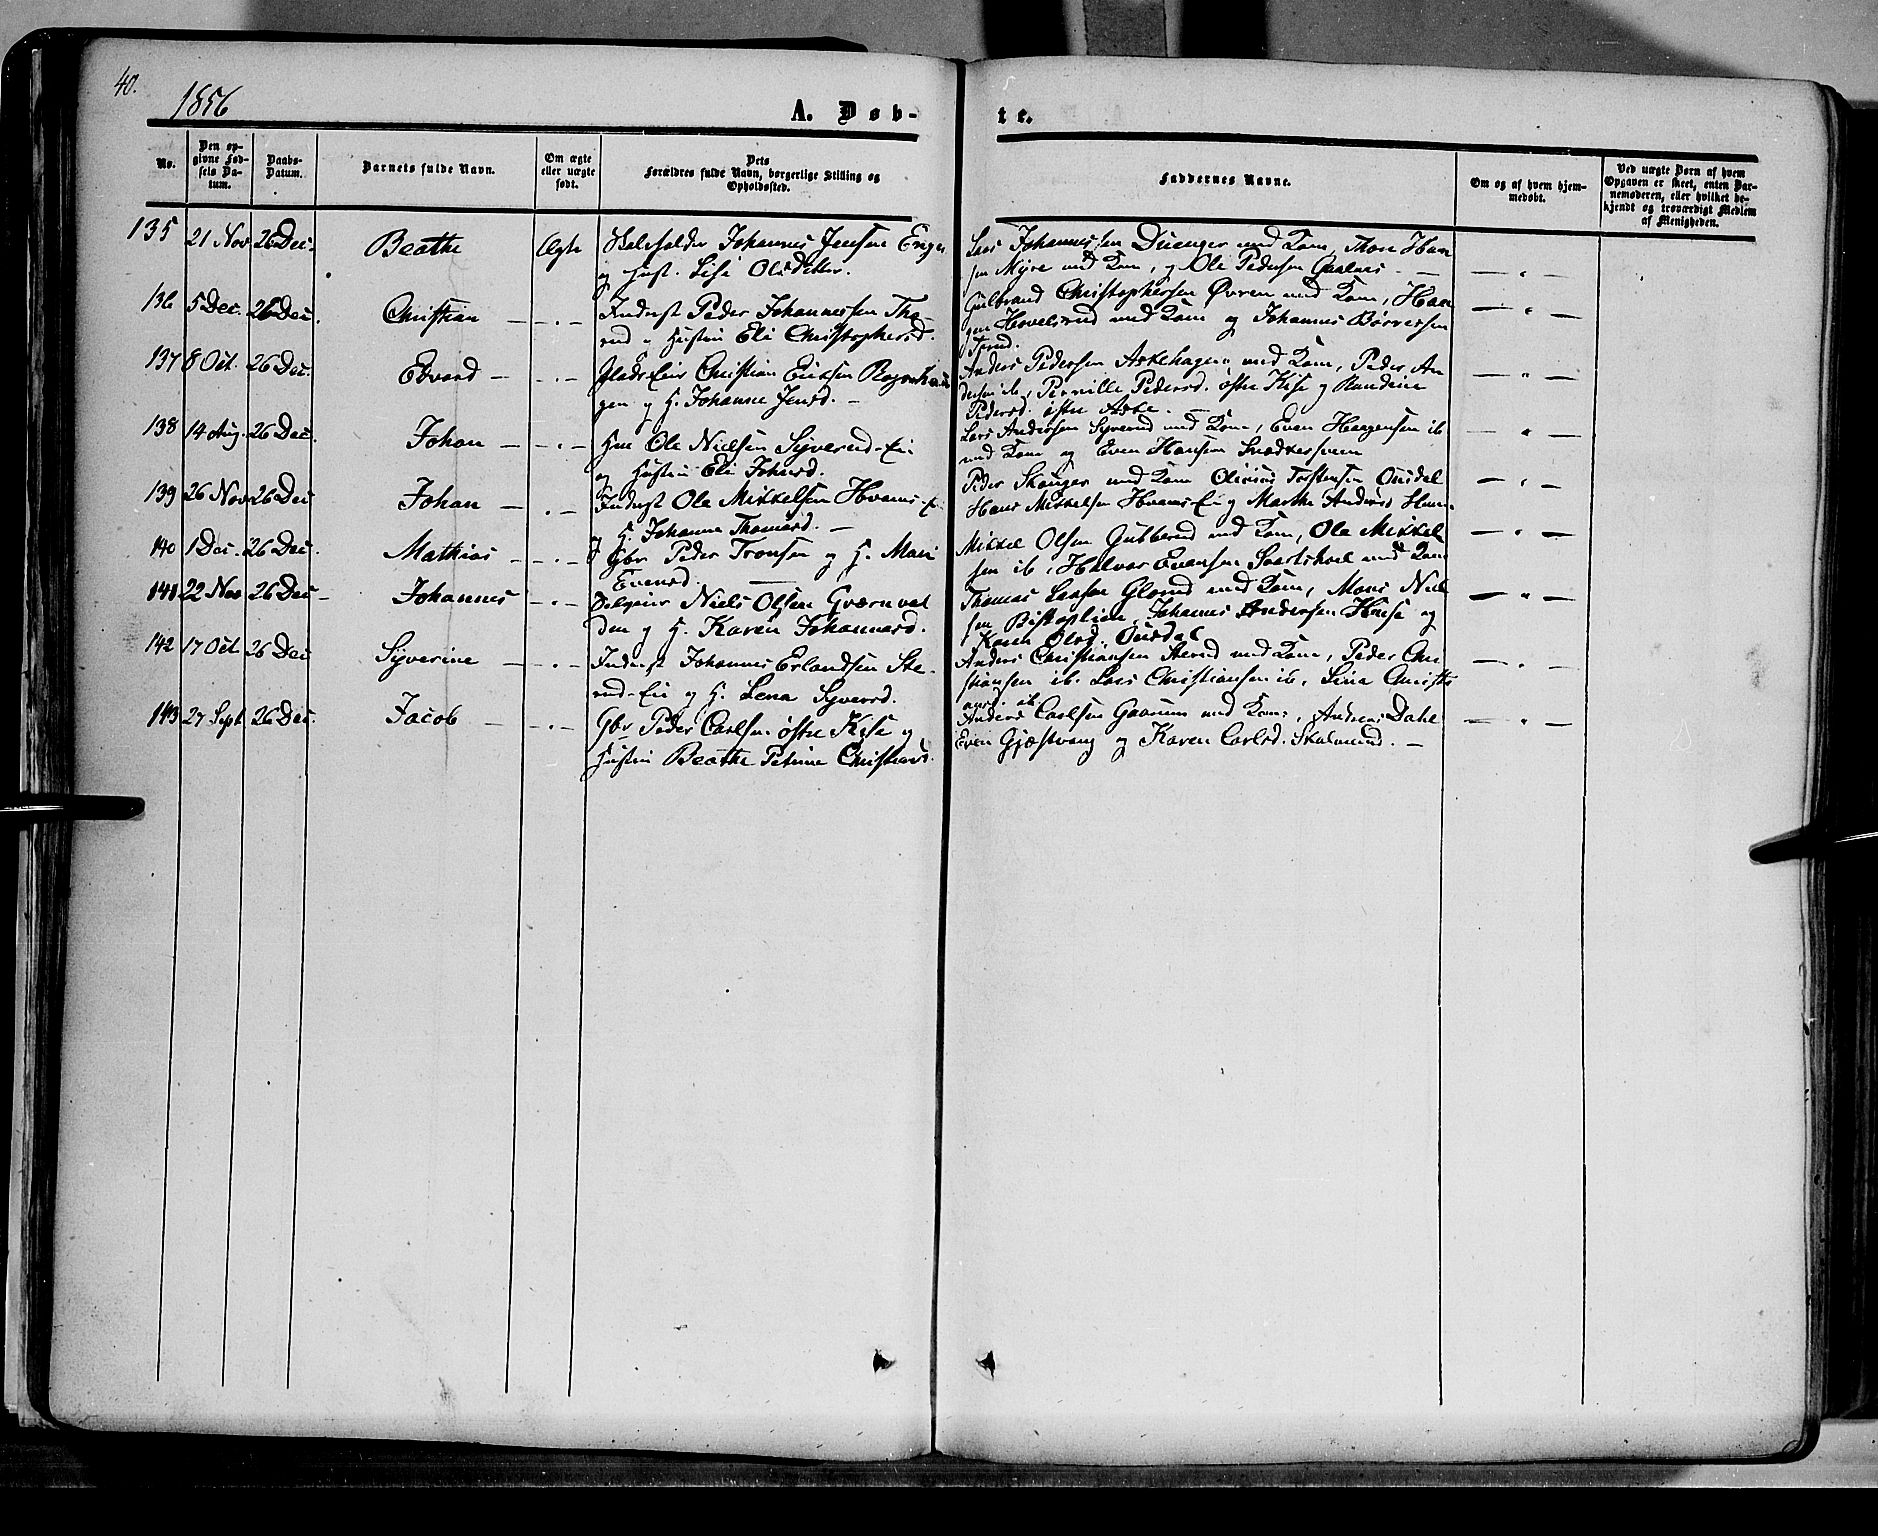 40.
1856
A. Døb-
te.
No.
Den op-
givne Fød-
sels Da-
tum.
Daabs-
Datum.
Barnets fulde Navn.
Om ægte
eller uægte
født.
Dets
Forældres fulde Navn, borgerlige Stilling og
Opholdssted.
Faddernes Navne.
Om og af hvem hjem-
medøbt.
Ved uægte Børn af hvem
Opgaven er skeet, enten Bar-
nemoderen, eller hvilket be-
kjendt og troværdigt Medlem
af Menigheden.
135 21 Nov 26 Dec. Beathe Ægte Johannes Jensen
og Hust. Lise Olsdatter.
Lars Johannessen Duenger med Kone, Thor Han
sen Myre med Kone, og Ole Pedersen
136 5 Dec. 26 Dec. Christian — " — Inderst Peder Johannessen The-
rud og Hustru Eli Christophersd.
Gulbrand Christophersen Øvren med Kone, Haa
gen Hovelsrud med Kone og Johannes Børresen
137 8 Oct. 26 Dec. Edvard — " — Christian Ericksen
gen og H. Johanne Jensd. —
Anders Pedersen Askehagen med Kone, Peder An
dersen ib, Pernille Pedersd. østre Kise og Randine
Pedersd. østre Aske. —
138 14 Aug. 26 Dec. Johan — " — Hmd Ole Nielsen Syverud-Eie
og Hustru Eli Johansd.
Lars Andersen Syverud med Kone, Even Haagensen ib
med Kone og Even Hansen
139 26 Nov 26 Dec Johan — " — Inderst Ole Mikkelsen Hvams-Ei
og H. Johanne Thomasd. —
Peder Skanger med Kone Torstensen Ousdal
Hans Mikkelsen Hvams Ei og Marthe Andersd
140 1 Dec. 26 Dec. Mathias — " — Gbr Peder Tronsen og H. Mari
Evensd. —
Mikkel Olsen Gubberud med Kone, Ole Mikkel
sen ib, Halvor Evensen med Kone
141 22 Nov 26 Dec — Johannes — " — Niels Olsen
den og H. Karen Johannesd.
Thomas Larsen med Kone, Mons Niel
sen Biskoplien, Johannes Andersen og
Karen Olsd. Ousdal
142 17 Oct 26 Dec Syverine — " — Inderst Johannes Erlandsen Ste-
rud-Eie og H. Lena Syversd.
Anders Christiansen Sterud med Kone, Peder Chri
stiansen ib. Lars Christiansen ib, Lina Christi
ansd. ib.
143 27 Sept 26 Dec. Jacob — " — Gbr Peder Carlsen østre Kise og
Hustru Beathe Petrine Christiansd.
Anders Carlsen Gaarum med Kone, Andreas Dahl
Even Gjæstvang og Karen Carlsd. Skalmerud. —